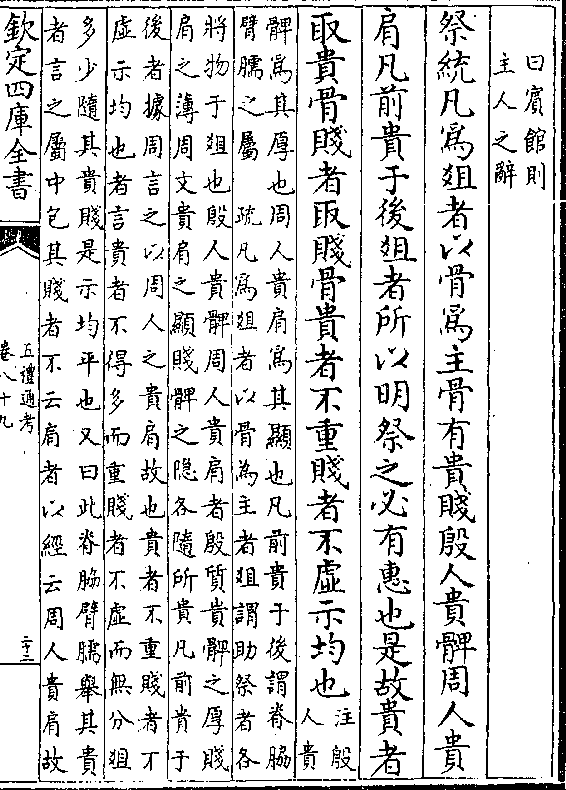 曰賓館則
主人之辭
祭統凡爲俎者以骨爲主骨有貴賤殷人貴髀周人貴
肩凡前貴于後俎者所以明祭之必有惠也是故貴者
取貴骨賤者取賤骨貴者不重賤者不虚示均也
注殷
人貴
髀爲其厚也周人貴肩爲其顯也凡前貴于後謂脊脇
臂臑之屬 疏凡爲俎者以骨為主者俎謂助祭者各
將物于俎也殷人貴髀周人貴肩者殷質貴髀之厚賤
肩之薄周文貴肩之顯賤髀之隐各隨所貴凡前貴于
後者據周言之以周人之貴肩故也貴者不重賤者不
虚示均也者言貴者不得多而重賤者不虚而無分俎
多少隨其貴賤是示均平也又曰此脊脇臂臑舉其貴
者言之屬中包其賤者不云肩者以經云周人貴肩故
欽定四庫全書
五禮通考
卷八十九
二十三